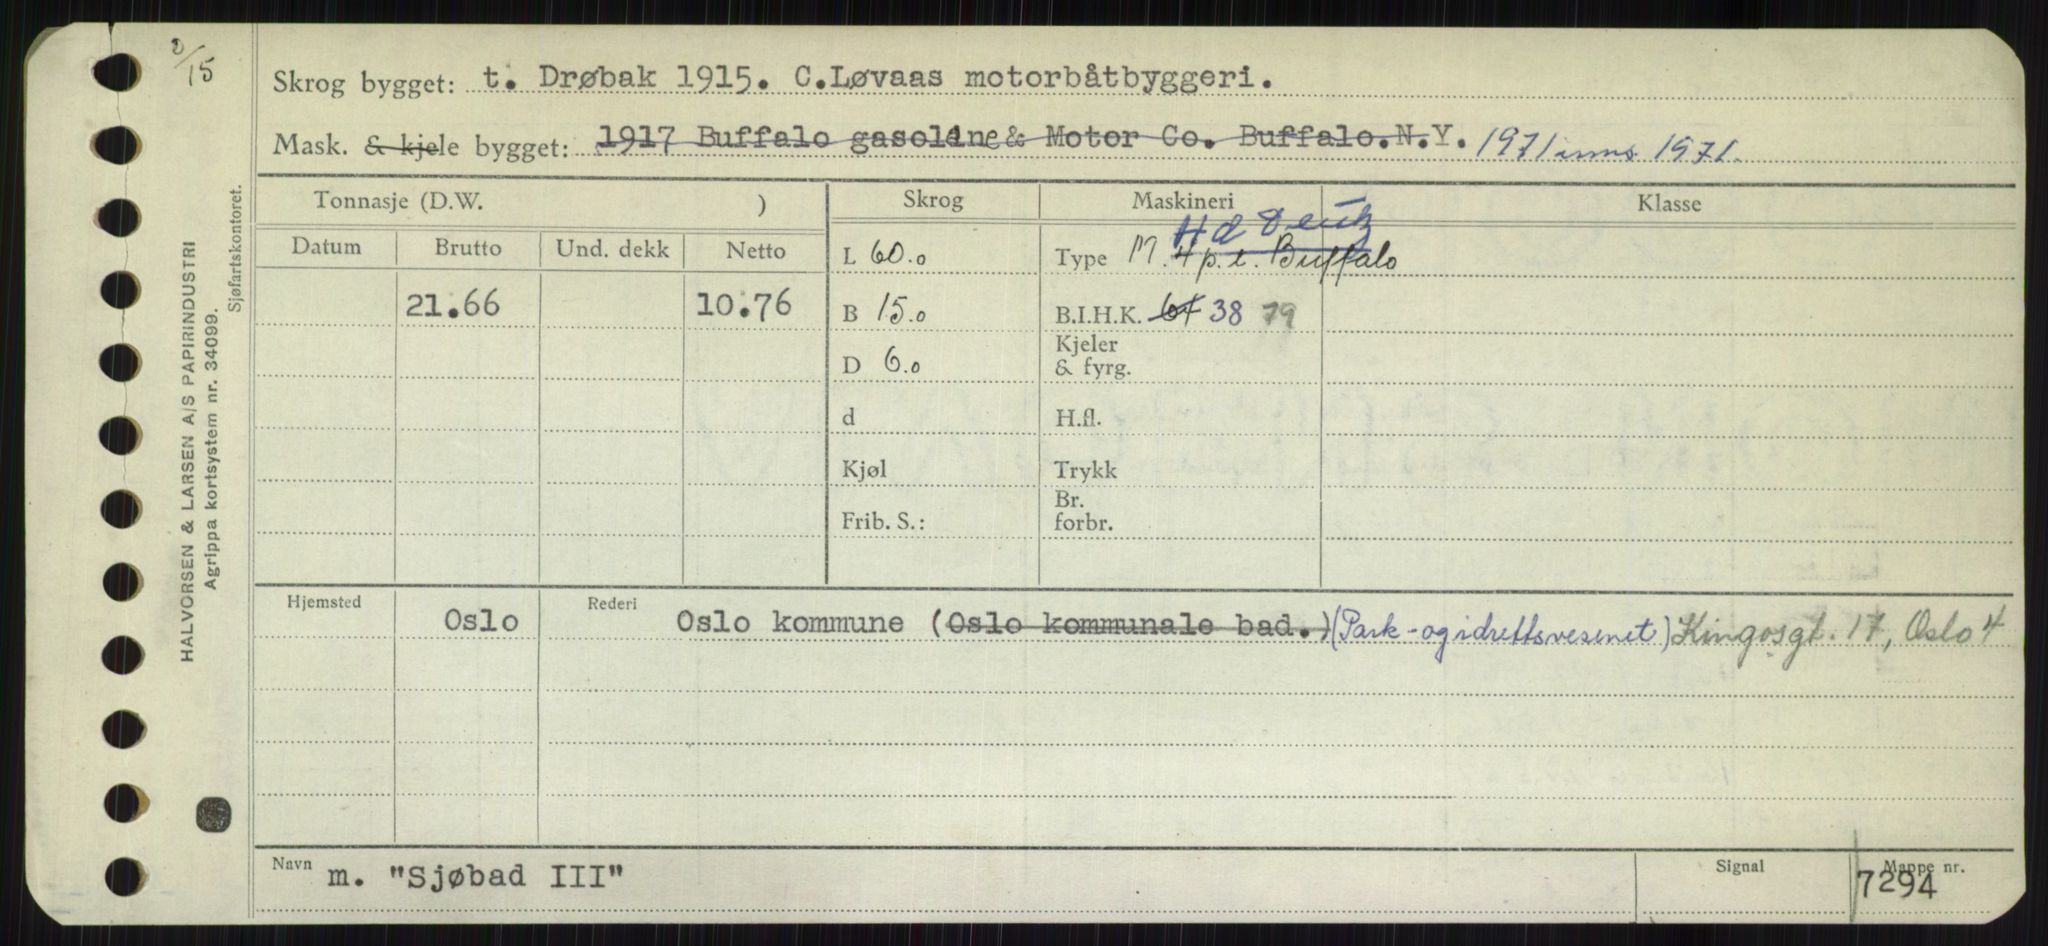 2/15
Skrog bygget: t. Drøbak 1915. C.Løvaas motorbåtbyggeri.
Mask. & kjele bygget: 1917 Buffalo gasoline & Motor Co. Buffalo.N.Y. 1971 inns 1971.
Tonnasje (D.W. ) Skrog Maskineri Klasse
Datum Brutto Und. dekk Netto
Hd Deutz
L 60.0 Type M. 4 p.e. Buffalo
21.66 10.76 B 15.0 B.I.H.K. 64 38 79
D 6.0 Kjeler & fyrg.
d H.fl.
Kjøl Trykk
Frib. S.: Br. forbr.
Hjemsted Oslo Rederi Oslo kommune (Oslo kommunale bad.) (Park- og idrettsvesenet) Kingosgt. 17, Oslo 4
Navn m. "Sjøbad III" Signal Mappe nr. 7294
HALVORSEN & LARSEN A/S PAPIRINDUSTRI
Agrippa kortsystem nr. 34099.
Sjøfartskontoret.